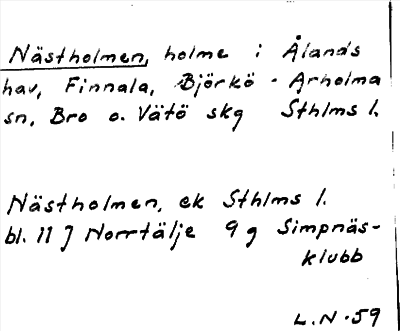 Nästholmen, holme i Ålands
hav, Finnala, Björkö - Arholma
sn. Bro o. Vätö skg Sthlms l.
Nästholmen, ek Sthlms l.
bl. 11 J Norrtälje 9 g Simpnäs-
klubb
L.N. 59